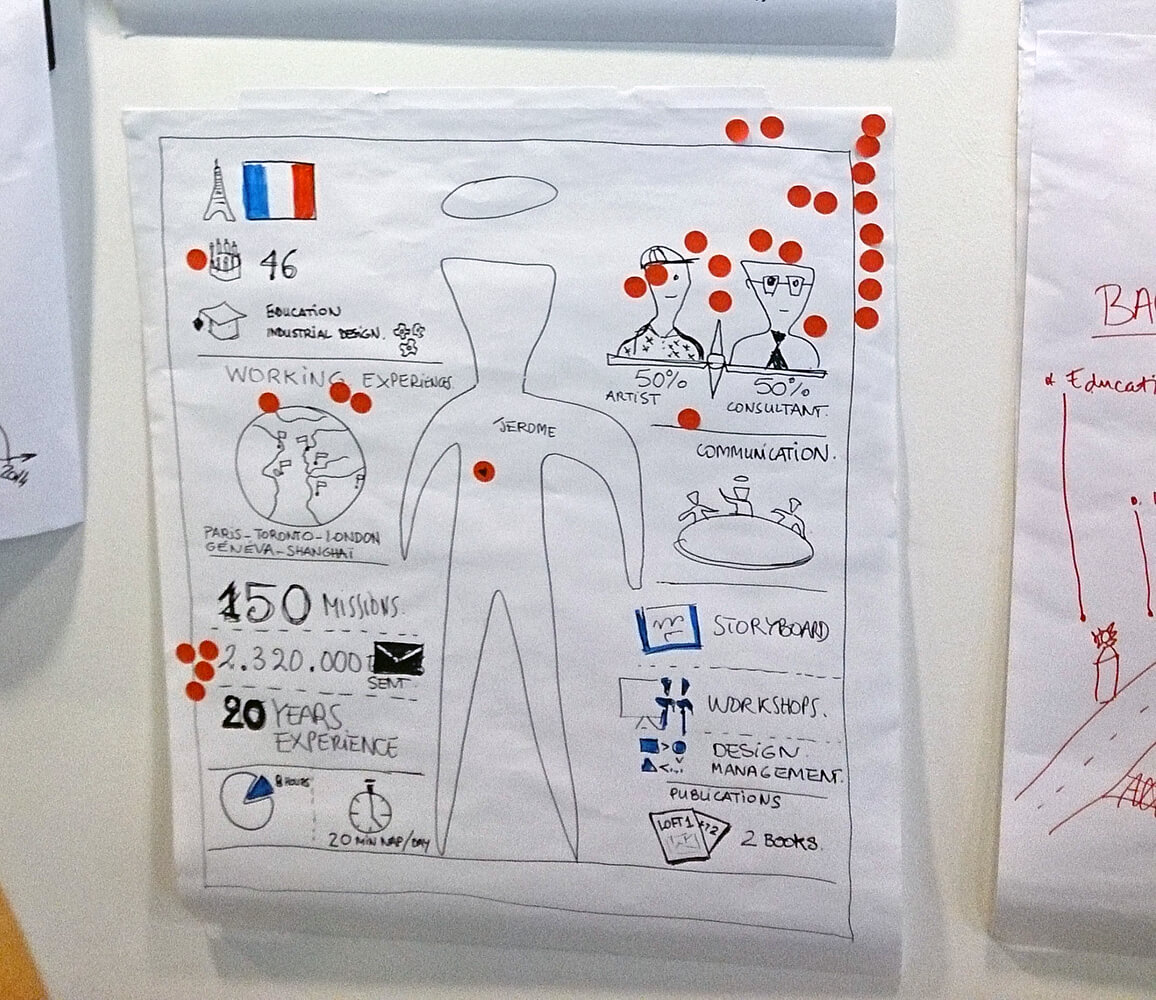 46
EDUCATION
INDUSTRIAL DESIGN.
WORKING EXPERIENCES
PARIS-TORONTO-LONDON
GÉNÉVA-SHANGHAÏ
150 MISSIONS.
2.320.000
SENT.
20 YEARS
EXPERIENCE
8 HOURS
20 MIN NAP/DAY
JEROME
50%
ARTIST
50%
CONSULTANT.
COMMUNICATION.
STORYBOARD
WORKSHOPS.
DESIGN
MANAGEMENT.
PUBLICATIONS
LOFT 1
2 BOOKS.
2014